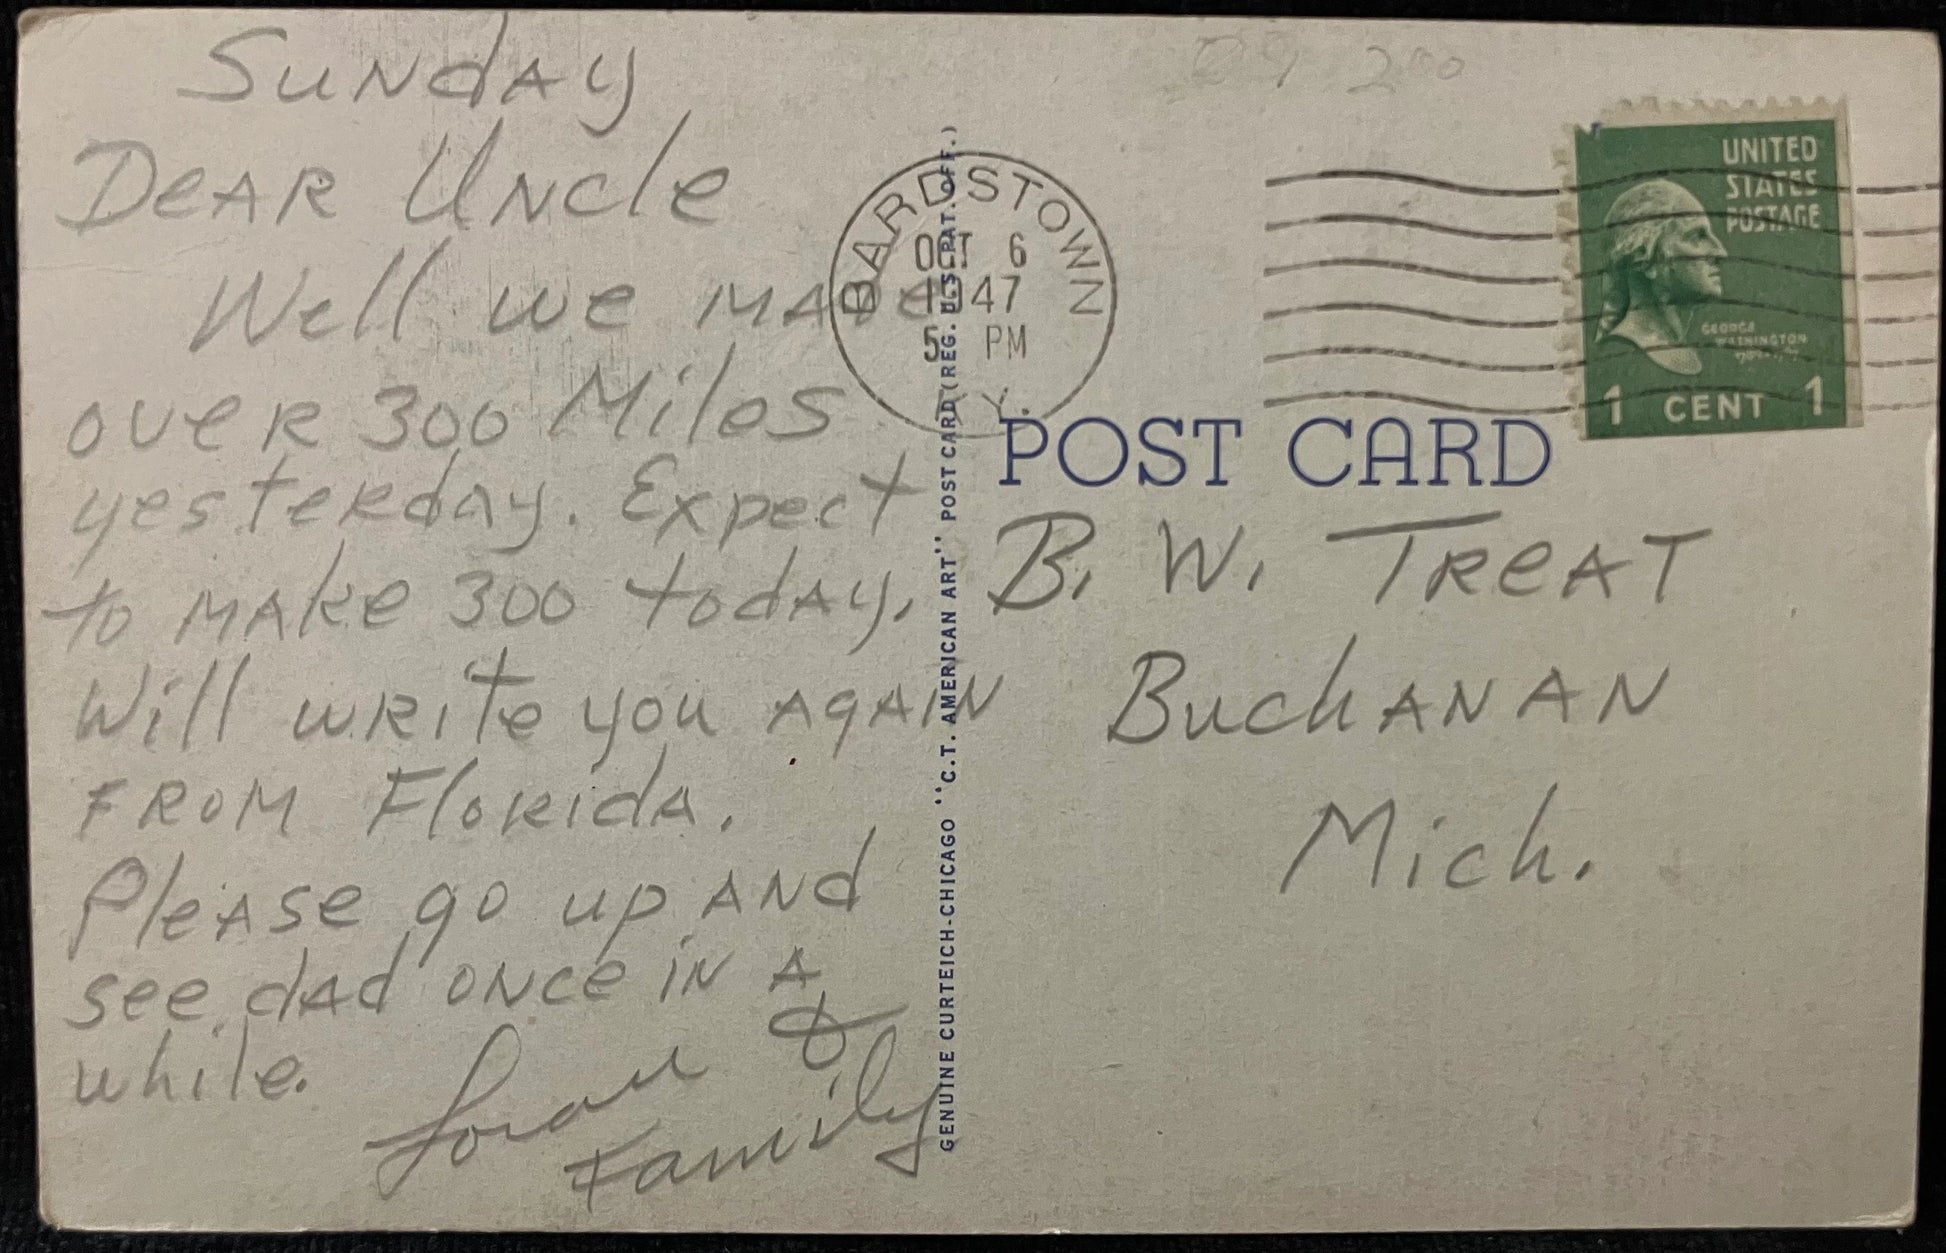 Sunday
Dear Uncle
Well we made
over 300 Miles
yesterday. Expect
to make 300 today.
Will write you again
from Florida.
Please go up and
see dad once in a
while.
&
Family
GENUINE CURTEICH-CHICAGO "C.T. AMERICAN ART" POST CARD (REG. U.S. PAT. OFF.)
BARDSTOWN
OCT 6
1947
5 PM
Y.
UNITED
STATES
POSTAGE
GEORGE
WASHINGTON
1 CENT 1
POST CARD
B. W. Treat
Buchanan
Mich.